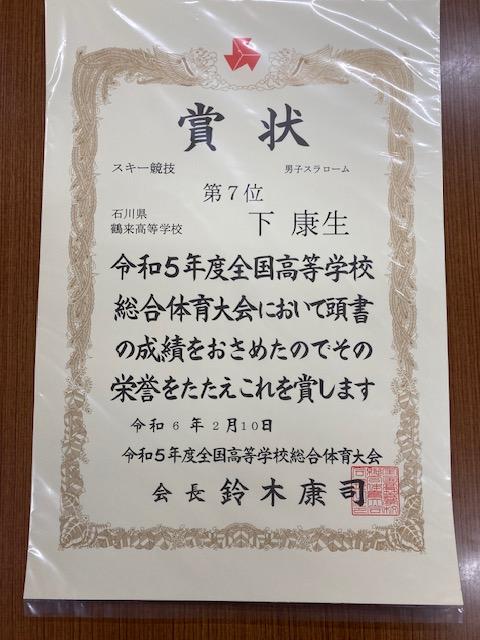 賞状
スキー競技 男子スラローム
第7位
石川県
鶴来高等学校 下 康生
令和5年度全国高等学校
総合体育大会において頭書
の成績をおさめたのでその
栄誉をたたえこれを賞します
令和 6 年 2月10日
令和5年度全国高等学校総合体育大会
会長 鈴木康司